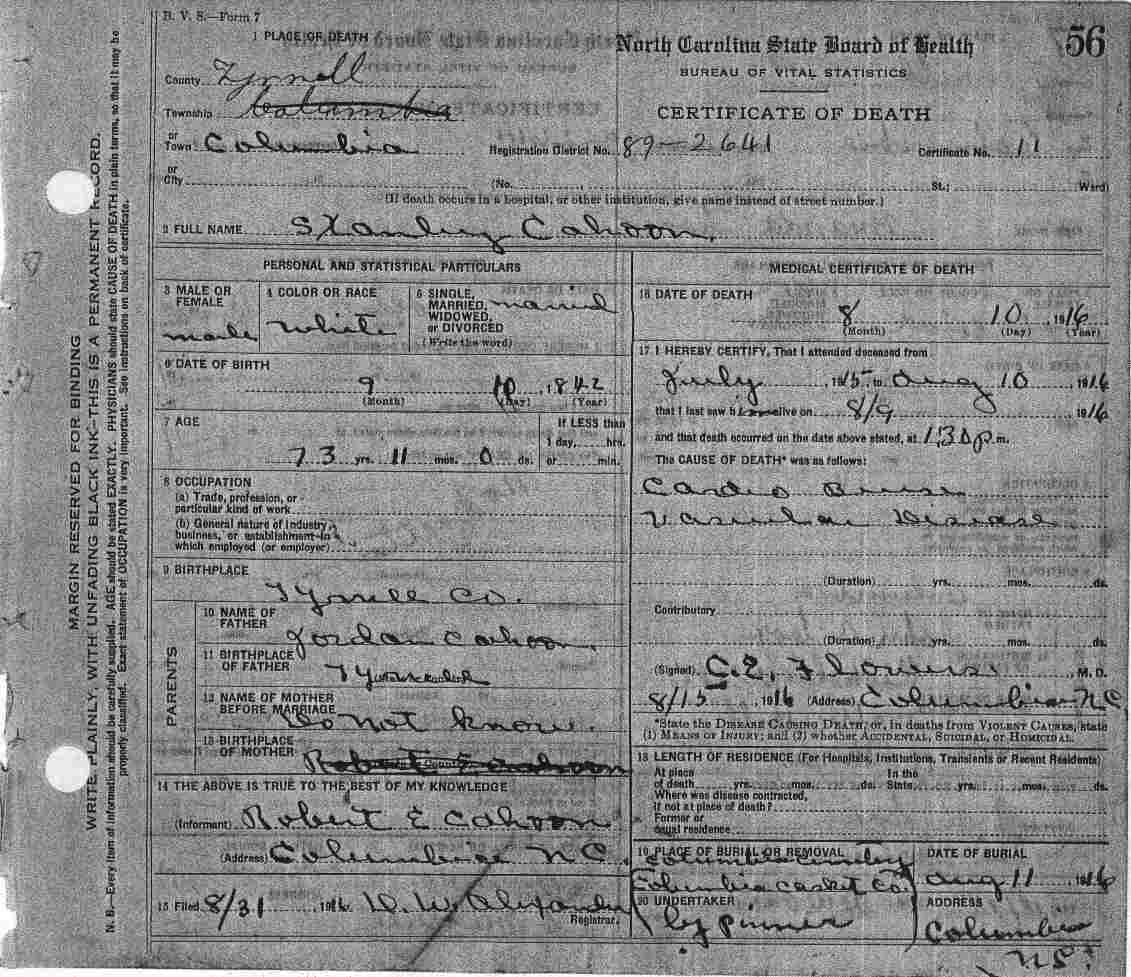 B. V. S.—Form 7
1 PLACE OF DEATH
North Carolina State Board of Health
56
BUREAU OF VITAL STATISTICS
CERTIFICATE OF DEATH
County Tyrrell
Township Columbia
or
Town Columbia
Registration District No. 89-2641
Certificate No. 11
or
City
(No. , St.; Ward)
(If death occurs in a hospital, or other institution, give name instead of street number.)
2 FULL NAME Stanley Cahoon,
PERSONAL AND STATISTICAL PARTICULARS
3 MALE OR FEMALE
male
4 COLOR OR RACE
white
5 SINGLE, MARRIED, WIDOWED, or DIVORCED
(Write the word)
married
6 DATE OF BIRTH
9 10, 1842
(Month) (Day) (Year)
7 AGE
If LESS than
1 day, hrs.
73 yrs. 11 mos. 0 ds. or min.
8 OCCUPATION
(a) Trade, profession, or
particular kind of work
(b) General nature of industry,
business, or establishment in
which employed (or employer)
9 BIRTHPLACE
Tyrrell Co.
PARENTS
10 NAME OF
FATHER
Jordan Cahoon,
11 BIRTHPLACE
OF FATHER
12 NAME OF MOTHER
BEFORE MARRIAGE
Do not know.
13 BIRTHPLACE
OF MOTHER
Robert E Cahoon
14 THE ABOVE IS TRUE TO THE BEST OF MY KNOWLEDGE
(Informant) Robert E Cahoon
(Address) Columbia N C.
15 Filed 8/31 1916. D. W. Alexander
Registrar.
MEDICAL CERTIFICATE OF DEATH
16 DATE OF DEATH
8 10 1916
(Month) (Day) (Year)
17 I HEREBY CERTIFY, That I attended deceased from
July, 1915, to Aug 10 1916
that I last saw him alive on 8/9 1916
and that death occurred on the date above stated, at 1,30 p.m.
The CAUSE OF DEATH* was as follows:
Cardio
Vascular Disease
(Duration) yrs. mos. ds.
Contributory
(Duration) yrs. mos. ds.
(Signed) C. E. Flowers M. D.
8/15 1916 (Address) Columbia N C
*State the DISEASE CAUSING DEATH; or, in deaths from VIOLENT CAUSES, state
(1) MEANS OF INJURY; and (2) whether ACCIDENTAL, SUICIDAL, OR HOMICIDAL.
18 LENGTH OF RESIDENCE (For Hospitals, Institutions, Transients or Recent Residents)
At place In the
of death yrs. mos. ds. State yrs. mos. ds.
Where was disease contracted,
if not at place of death?
Former or
usual residence
19 PLACE OF BURIAL OR REMOVAL
Columbia
DATE OF BURIAL
Aug 11 1916
Columbia Casket Co.
20 UNDERTAKER
by pinner
ADDRESS
Columbia
N C.
MARGIN RESERVED FOR BINDING
WRITE PLAINLY, WITH UNFADING BLACK INK—THIS IS A PERMANENT RECORD.
N. B.—Every item of information should be carefully supplied. AGE should be stated EXACTLY. PHYSICIANS should state CAUSE OF DEATH in plain terms, so that it may be
properly classified. Exact statement of OCCUPATION is very important. See instructions on back of certificate.